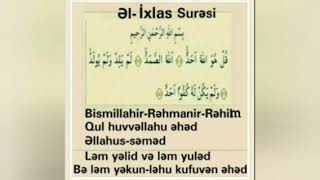 Əl-İxlas Surəsi
بِسْمِ اللهِ الرَّحْمٰنِ الرَّحِيْمِ
قُلْ هُوَ اللهُ اَحَدٌ ۚ اَللهُ الصَّمَدُ ۚ لَمْ يَلِدْ وَلَمْ يُولَدْ ۙ
وَلَمْ يَكُنْ لَهُ كُفُوًا اَحَدٌ
Bismillahir-Rəhmanir-Rəhim
Qul huvvəllahu əhəd
Əllahus-səməd
Ləm yəlid və ləm yuləd
Bə ləm yəkun-ləhu kufuvən əhəd